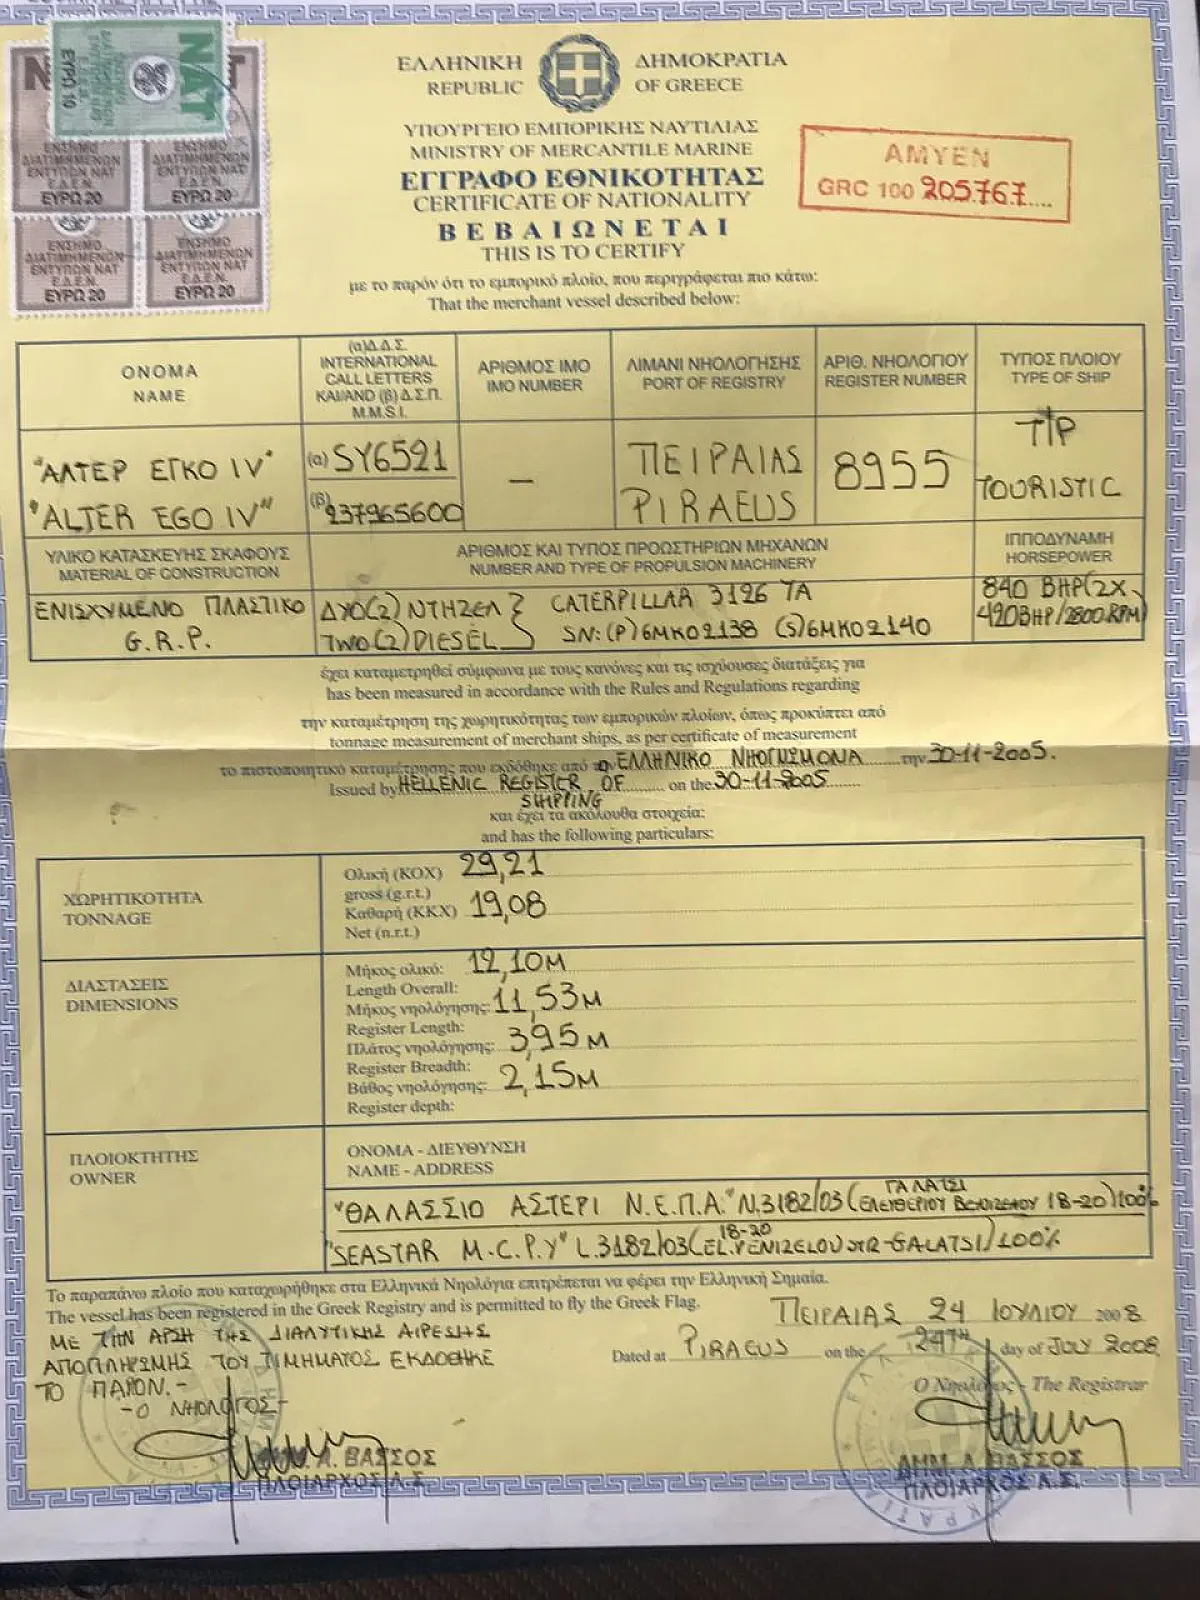 ΝΑΤ
ΕΥΡΩ 10
ΕΝΣΗΜΟ
ΔΙΑΤΙΜΗΜΕΝΩΝ
ΕΝΤΥΠΩΝ ΝΑΤ
Ε.Δ.Ε.Ν.
ΕΥΡΩ 20
ΕΝΣΗΜΟ
ΔΙΑΤΙΜΗΜΕΝΩΝ
ΕΝΤΥΠΩΝ ΝΑΤ
Ε.Δ.Ε.Ν.
ΕΥΡΩ 20
ΕΝΣΗΜΟ
ΔΙΑΤΙΜΗΜΕΝΩΝ
ΕΝΤΥΠΩΝ ΝΑΤ
Ε.Δ.Ε.Ν.
ΕΥΡΩ 20
ΕΝΣΗΜΟ
ΔΙΑΤΙΜΗΜΕΝΩΝ
ΕΝΤΥΠΩΝ ΝΑΤ
Ε.Δ.Ε.Ν.
ΕΥΡΩ 20
ΕΛΛΗΝΙΚΗ ΔΗΜΟΚΡΑΤΙΑ
REPUBLIC OF GREECE
ΥΠΟΥΡΓΕΙΟ ΕΜΠΟΡΙΚΗΣ ΝΑΥΤΙΛΙΑΣ
MINISTRY OF MERCANTILE MARINE
ΕΓΓΡΑΦΟ ΕΘΝΙΚΟΤΗΤΑΣ
CERTIFICATE OF NATIONALITY
ΒΕΒΑΙΩΝΕΤΑΙ
THIS IS TO CERTIFY
ΑΜΥΕΝ
GRC 100 205.767....
με το παρόν ότι το εμπορικό πλοίο, που περιγράφεται πιο κάτω:
That the merchant vessel described below:
ΟΝΟΜΑ
NAME
(α)Δ.Δ.Σ.
INTERNATIONAL
CALL LETTERS
ΚΑΙ/AND (β) Δ.Σ.Π.
M.M.S.I.
ΑΡΙΘΜΟΣ ΙΜΟ
IMO NUMBER
ΛΙΜΑΝΙ ΝΗΟΛΟΓΗΣΗΣ
PORT OF REGISTRY
ΑΡΙΘ. ΝΗΟΛΟΓΙΟΥ
REGISTER NUMBER
ΤΥΠΟΣ ΠΛΟΙΟΥ
TYPE OF SHIP
"ΑΛΤΕΡ ΕΓΚΟ IV"
"ALTER EGO IV"
(α) SY6521
(β) 237965600
—
ΠΕΙΡΑΙΑΣ
PIRAEUS
8955
Τ/Ρ
TOURISTIC
ΥΛΙΚΟ ΚΑΤΑΣΚΕΥΗΣ ΣΚΑΦΟΥΣ
MATERIAL OF CONSTRUCTION
ΑΡΙΘΜΟΣ ΚΑΙ ΤΥΠΟΣ ΠΡΟΩΣΤΗΡΙΩΝ ΜΗΧΑΝΩΝ
NUMBER AND TYPE OF PROPULSION MACHINERY
ΙΠΠΟΔΥΝΑΜΗ
HORSEPOWER
ΕΝΙΣΧΥΜΕΝΟ ΠΛΑΣΤΙΚΟ
G.R.P.
ΔΥΟ(2) ΝΤΗΖΕΛ } CATERPILLAR 3126 TA
TWO(2) DIESEL } SN: (P) 6MK02138 (S) 6MK02140
840 BHP (2X
420BHP/2800 RPM)
έχει καταμετρηθεί σύμφωνα με τους κανόνες και τις ισχύουσες διατάξεις για
has been measured in accordance with the Rules and Regulations regarding
την καταμέτρηση της χωρητικότητας των εμπορικών πλοίων, όπως προκύπτει από
tonnage measurement of merchant ships, as per certificate of measurement
το πιστοποιητικό καταμέτρησης που εκδόθηκε από τον ΕΛΛΗΝΙΚΟ ΝΗΟΓΝΩΜΟΝΑ την 30-11-2005.
Issued by HELLENIC REGISTER OF on the 30-11-2005
SHIPPING
και έχει τα ακόλουθα στοιχεία:
and has the following particulars:
ΧΩΡΗΤΙΚΟΤΗΤΑ
TONNAGE
Ολική (ΚΟΧ) 29,21
gross (g.r.t.)
Καθαρή (ΚΚΧ) 19,08
Net (n.r.t.)
ΔΙΑΣΤΑΣΕΙΣ
DIMENSIONS
Μήκος ολικό: 12,10Μ
Length Overall:
Μήκος νηολόγησης: 11,53Μ
Register Length:
Πλάτος νηολόγησης: 3,95Μ
Register Breadth:
Βάθος νηολόγησης: 2,15Μ
Register depth:
ΠΛΟΙΟΚΤΗΤΗΣ
OWNER
ΟΝΟΜΑ - ΔΙΕΥΘΥΝΣΗ
NAME - ADDRESS
ΓΑΛΑΤΣΙ
"ΘΑΛΑΣΣΙΟ ΑΣΤΕΡΙ Ν.Ε.Π.Α." Ν.3182/03 (ΕΛΕΥΘΕΡΙΟΥ ΒΕΝΙΖΕΛΟΥ 18-20) 100%
18-20
"SEASTAR M.C.P.Y" L.3182/03 (EL.VENIZELOU STR-GALATSI) 100%
Το παραπάνω πλοίο που καταχωρήθηκε στα Ελληνικά Νηολόγια επιτρέπεται να φέρει την Ελληνική Σημαία.
The vessel has been registered in the Greek Registry and is permitted to fly the Greek Flag.
ΠΕΙΡΑΙΑΣ 24 ΙΟΥΛΙΟΥ 2008
Dated at PIRAEUS on the 24TH day of JULY 2008
ΜΕ ΤΗΝ ΑΡΣΗ ΤΗΣ ΔΙΑΛΥΤΙΚΗΣ ΑΙΡΕΣΗΣ
ΑΠΟΠΛΗΡΩΜΗΣ ΤΟΥ ΤΙΜΗΜΑΤΟΣ ΕΚΔΟΘΗΚΕ
ΤΟ ΠΑΡΟΝ.-
-Ο ΝΗΟΛΟΓΟΣ-
Α. ΒΑΣΣΟΣ
ΠΛΟΙΑΡΧΟΣ Λ.Σ.
Ο Νηολόγος - The Registrar
ΔΗΜ. Α. ΒΑΣΣΟΣ
ΠΛΟΙΑΡΧΟΣ Λ.Σ.